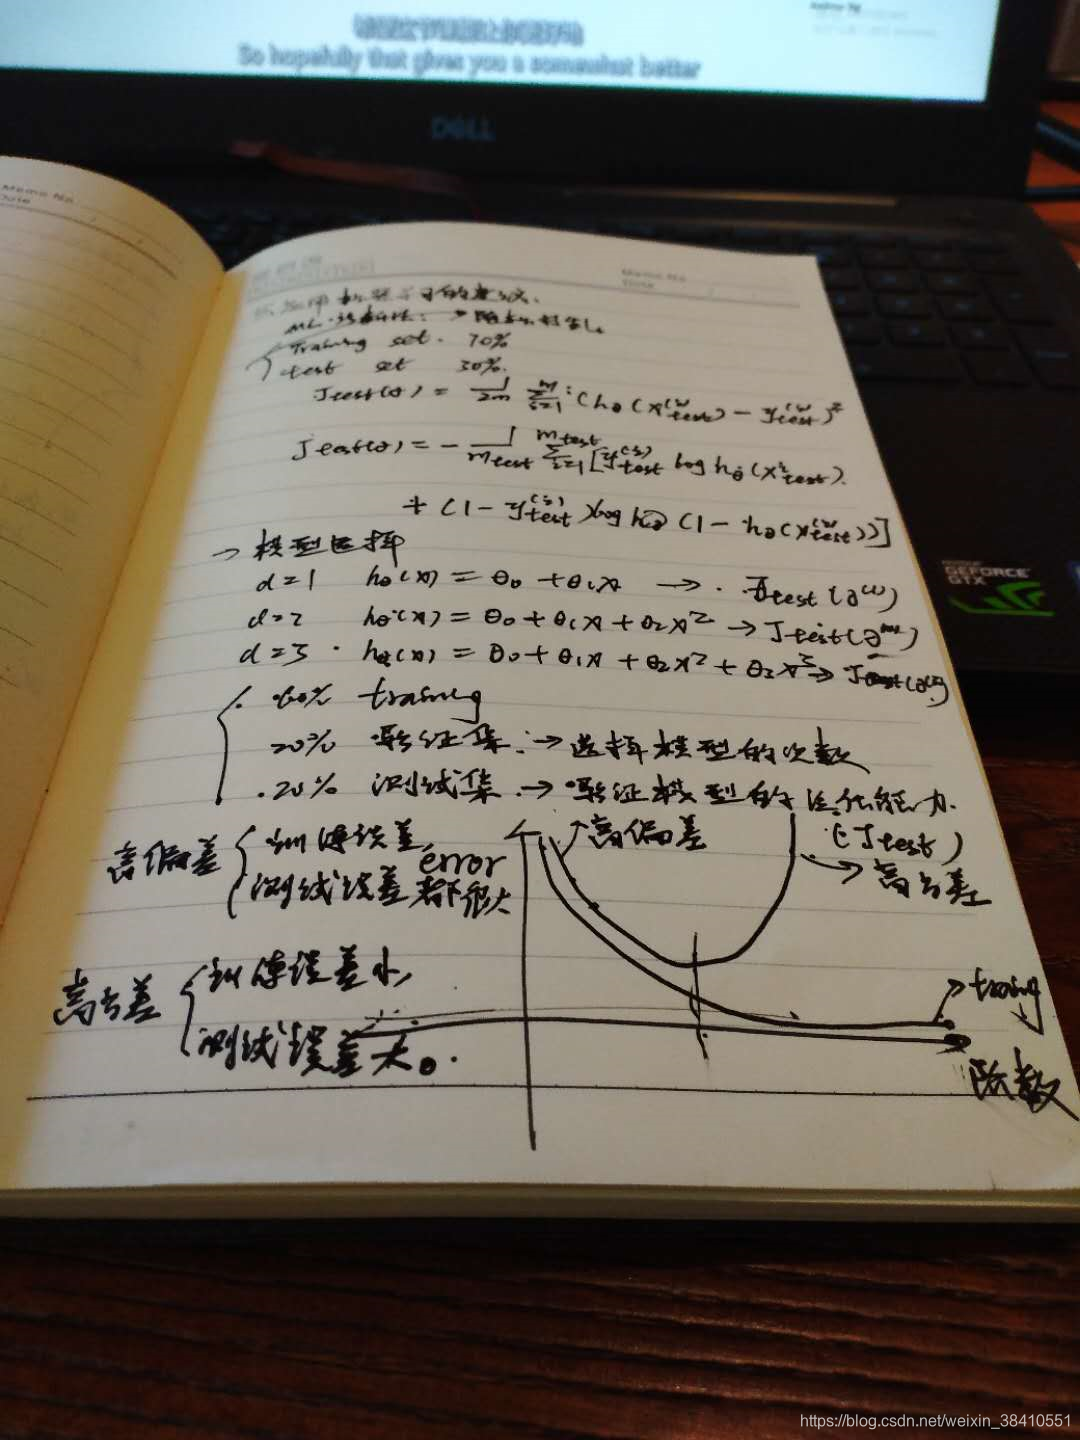 So hopefully that gives you a somewhat better
DELL
Memo No.
Date
Memo No.
Date
Training set. 70%
test set 30%.
Jtest(θ) = 1/2m Σ i=1 m (hθ(x(i)test) - y(i)test)²
Jtest(θ) = - 1/mtest Σ i=1 mtest [y(i)test log hθ(x(i)test)
+ (1 - y(i)test) log hθ (1 - hθ(x(i)test))]
→ 模型选择
d=1 hθ(x) = θ0 + θ1x → Jtest(θ(1))
d=2 hθ(x) = θ0 + θ1x + θ2x² → Jtest(θ)
d=3 hθ(x) = θ0 + θ1x + θ2x² + θ3x³ →
60% training
20% 验证集 → 选择模型的次数
20% 测试集 → 验证模型的泛化能力.
(Jtest)
高偏差 { 训练误差,
测试误差都很大
error
高偏差
高方差
高方差 { 训练误差小,
测试误差大。
training
阶数
GEFORCE
GTX
https://blog.csdn.net/weixin_38410551